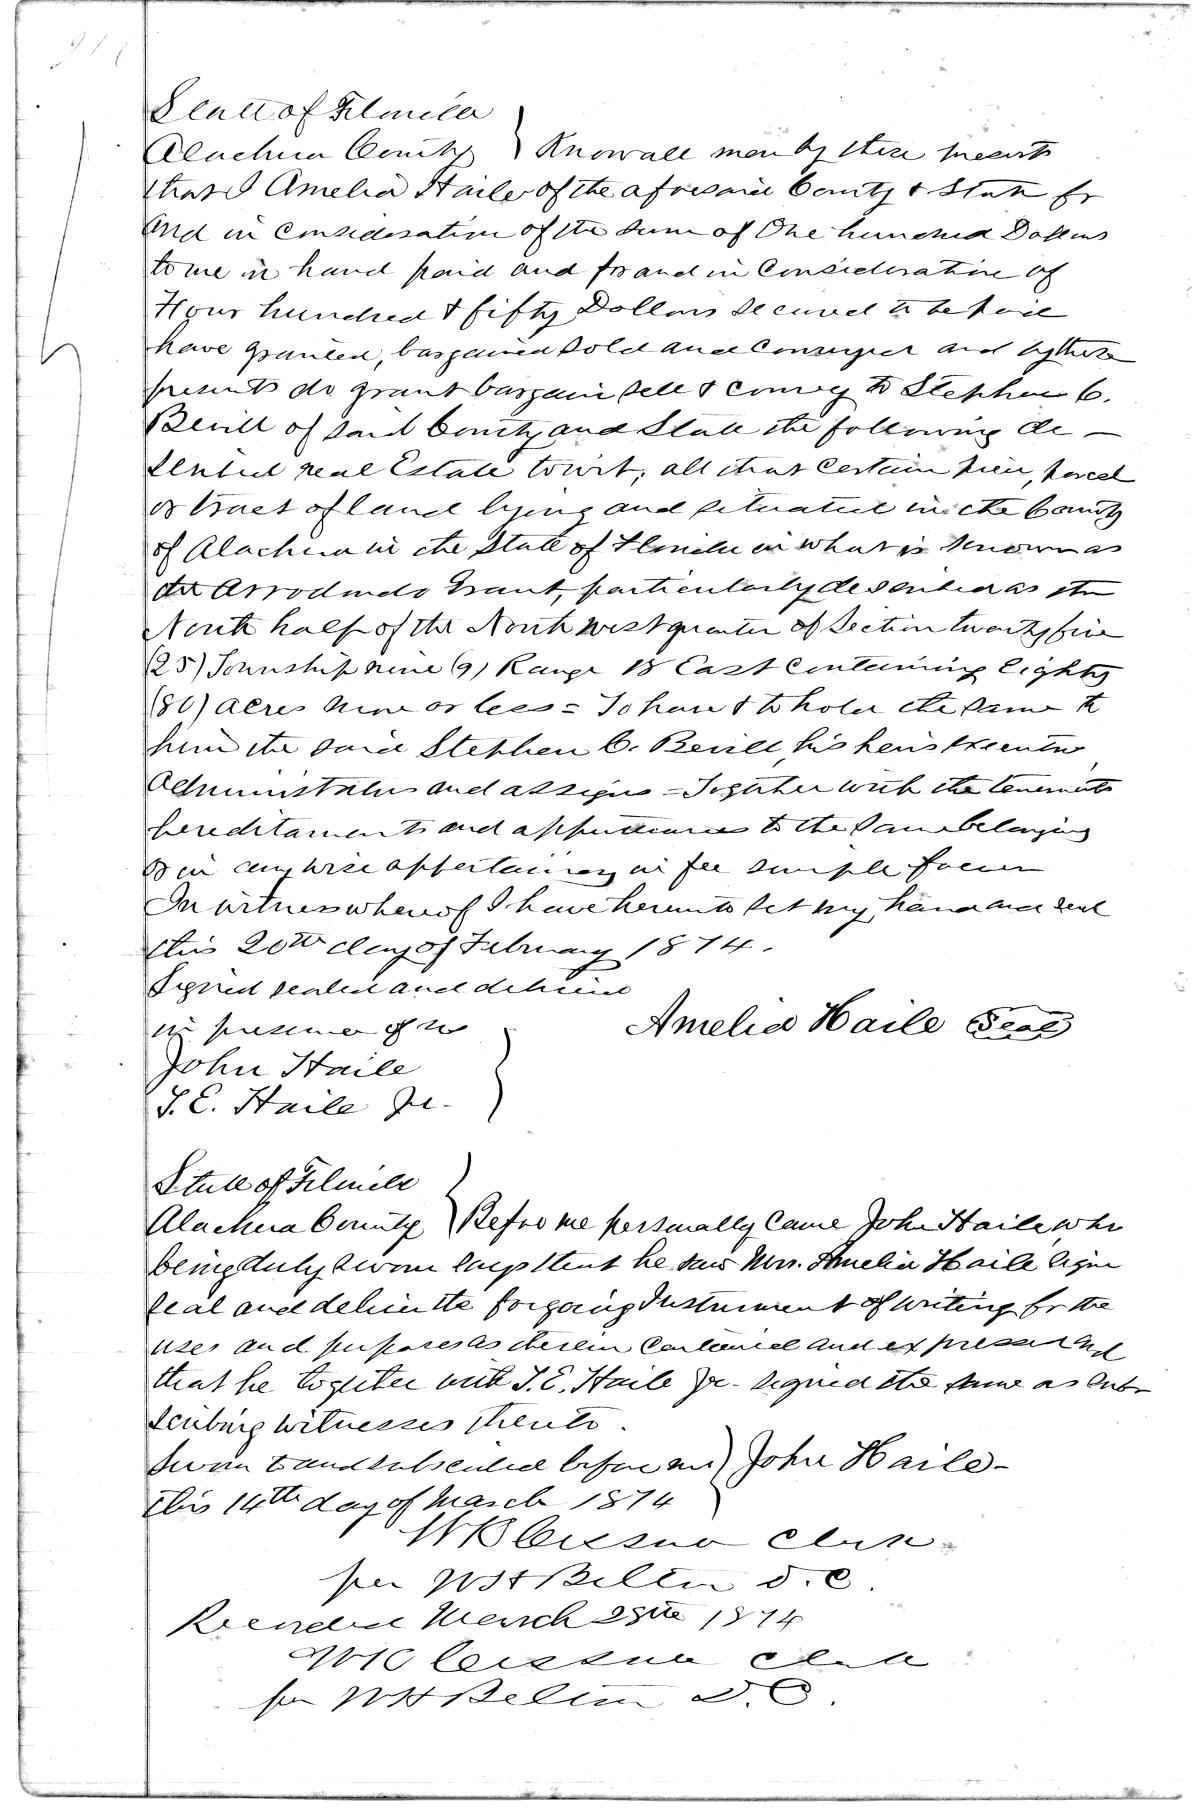 State of Florida
Alachua County } Know all men by these presents
that I Amelia Haile of the aforesaid County & State for
and in consideration of the sum of One hundred Dollars
to me in hand paid and for and in consideration of
Four hundred & fifty Dollars secured to be paid
have granted, bargained sold and conveyed and by these
presents do grant bargain sell & convey to Stephen C.
Bevill of said County and State the following de-
scribed real Estate towit; all that certain piece, parcel
or tract of land lying and situated in the County
of Alachua in the State of Florida in what is known as
the Arrodondo Grant, particularly described as the
North half of the North west quarter of Section twenty five
(25) Township nine (9) Range 18 East containing Eighty
(80) acres more or less = To have & to hold the same to
him the said Stephen C. Bevill, his heirs Executors
Administrators and assigns = Together with the tenements
hereditaments and appurtenances to the same belonging
or in any wise appertaining in fee simple forever
In witness whereof I have hereunto set my hand and seal
this 20th day of February 1874.
Signed sealed and delivered
in presence of us
Amelia Haile Seal
John Haile
T. E. Haile Jr.
State of Florida
Alachua County } Before me personally came John Haile, who
being duly sworn says that he saw Mrs. Amelia Haile sign
seal and deliver the forgoing Instrument of writing for the
uses and purposes as therein contained and expressed and
that he together with T. E. Haile Jr. signed the same as sub-
scribing witnesses thereto.
Sworn to and subscribed before me } John Haile-
this 14th day of March 1874
W K Cessna Clerk
per W H Belton D. C.
Recorded March 28th 1874
W K Cessna Clerk
per W H Belton D. C.